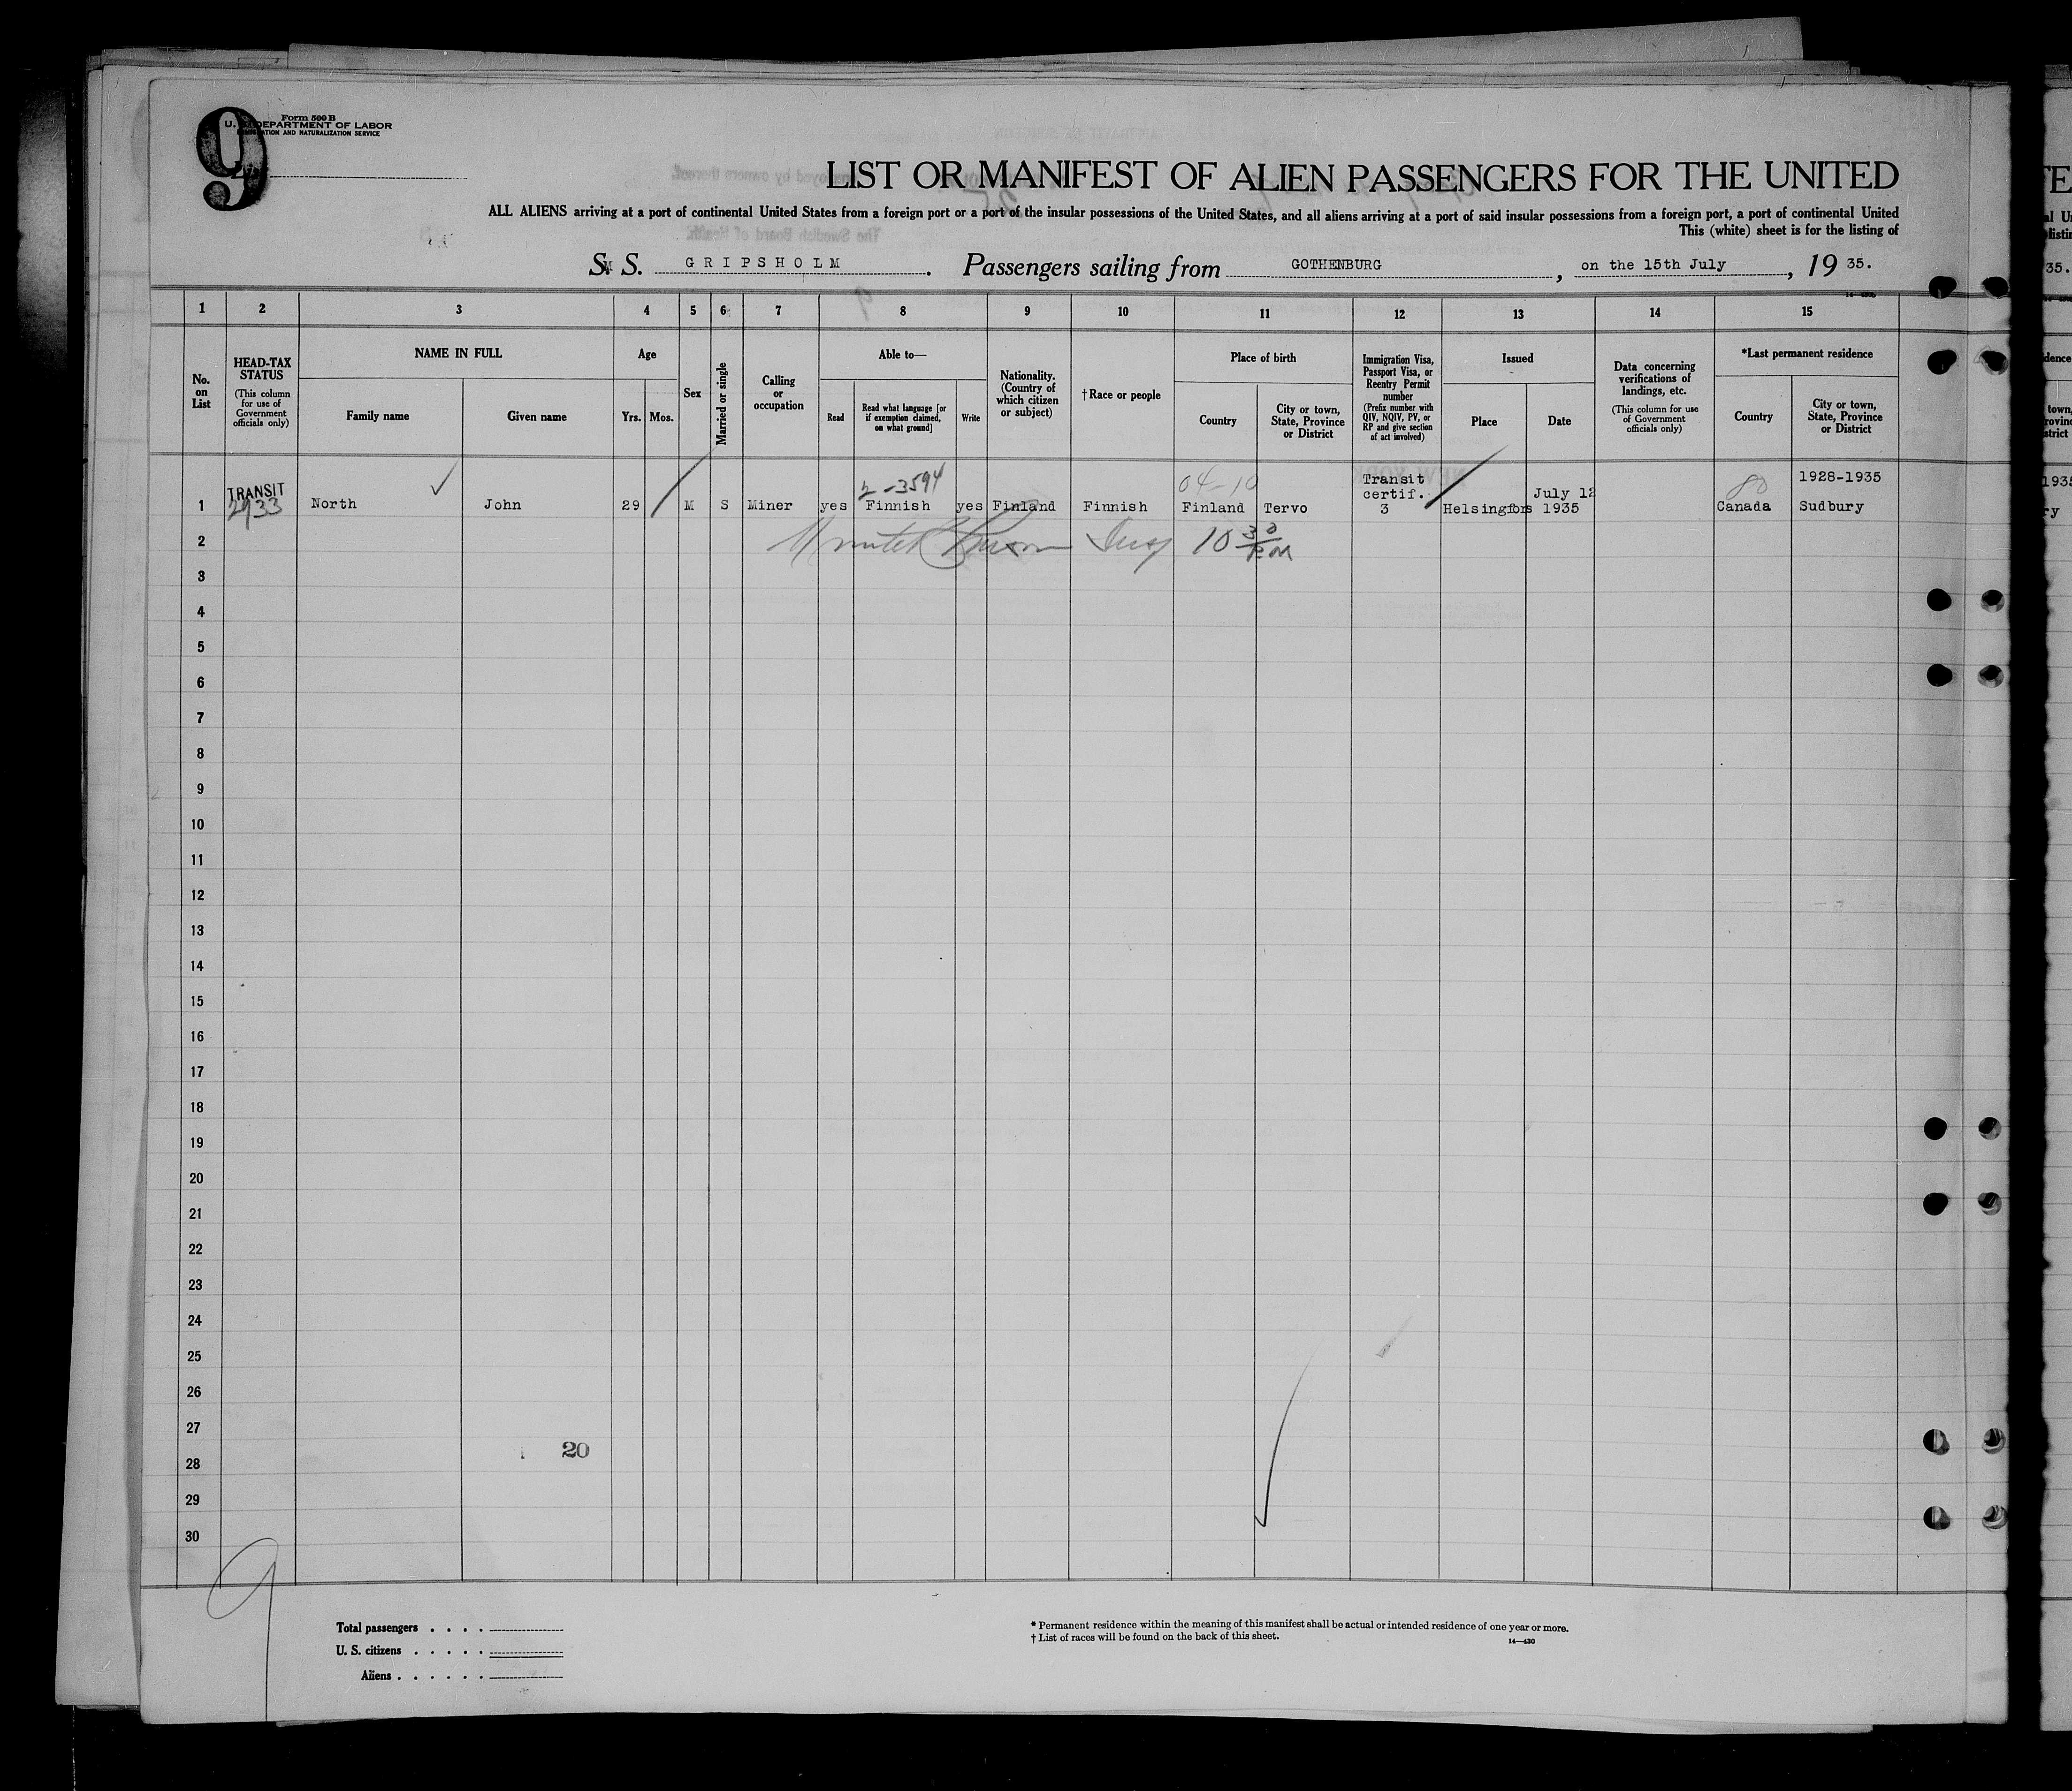 9
Form 500 B
U. S. DEPARTMENT OF LABOR
IMMIGRATION AND NATURALIZATION SERVICE
LIST OR MANIFEST OF ALIEN PASSENGERS FOR THE UNITED
ALL ALIENS arriving at a port of continental United States from a foreign port or a port of the insular possessions of the United States, and all aliens arriving at a port of said insular possessions from a foreign port, a port of continental United
This (white) sheet is for the listing of
S. S. GRIPSHOLM. Passengers sailing from GOTHENBURG, on the 15th July, 19 35.
1 2 3 4 5 6 7 8 9 10 11 12 13 14 15
No. on List
HEAD-TAX STATUS
(This column for use of Government officials only)
NAME IN FULL
Family name
Given name
Age
Yrs. Mos.
Sex
Married or single
Calling or occupation
Able to—
Read
Read what language [or if exemption claimed, on what ground]
Write
Nationality. (Country of which citizen or subject)
† Race or people
Place of birth
Country
City or town, State, Province or District
Immigration Visa, Passport Visa, or Reentry Permit number
(Prefix number with QIV, NQIV, PV, or RP and give section of act involved)
Issued
Place
Date
Data concerning verifications of landings, etc.
(This column for use of Government officials only)
*Last permanent residence
Country
City or town, State, Province or District
TRANSIT 2-3594 04-10 Transit 80 1928-1935
certif. July 12
1 2933 North John 29 M S Miner yes Finnish yes Finland Finnish Finland Tervo 3 Helsingfors 1935 Canada Sudbury
2 10 30 PM
3
4
5
6
7
8
9
10
11
12
13
14
15
16
17
18
19
20
21
22
23
24
25
26
27
20
28
29
30
9
Total passengers . . . .
U. S. citizens . . . . .
Aliens . . . . . .
* Permanent residence within the meaning of this manifest shall be actual or intended residence of one year or more.
† List of races will be found on the back of this sheet.
14—430